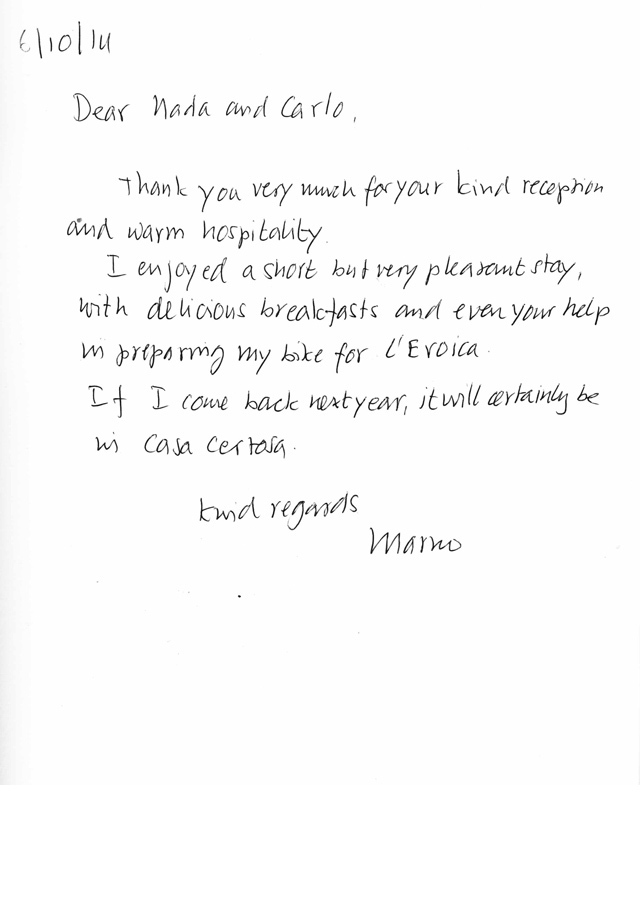 6/10/14
Dear Nada and Carlo,
Thank you very much for your kind reception
and warm hospitality.
I enjoyed a short but very pleasant stay,
with delicious breakfasts and even your help
in preparing my bike for l'Eroica.
If I come back next year, it will certainly be
in Casa Certosa.
kind regards